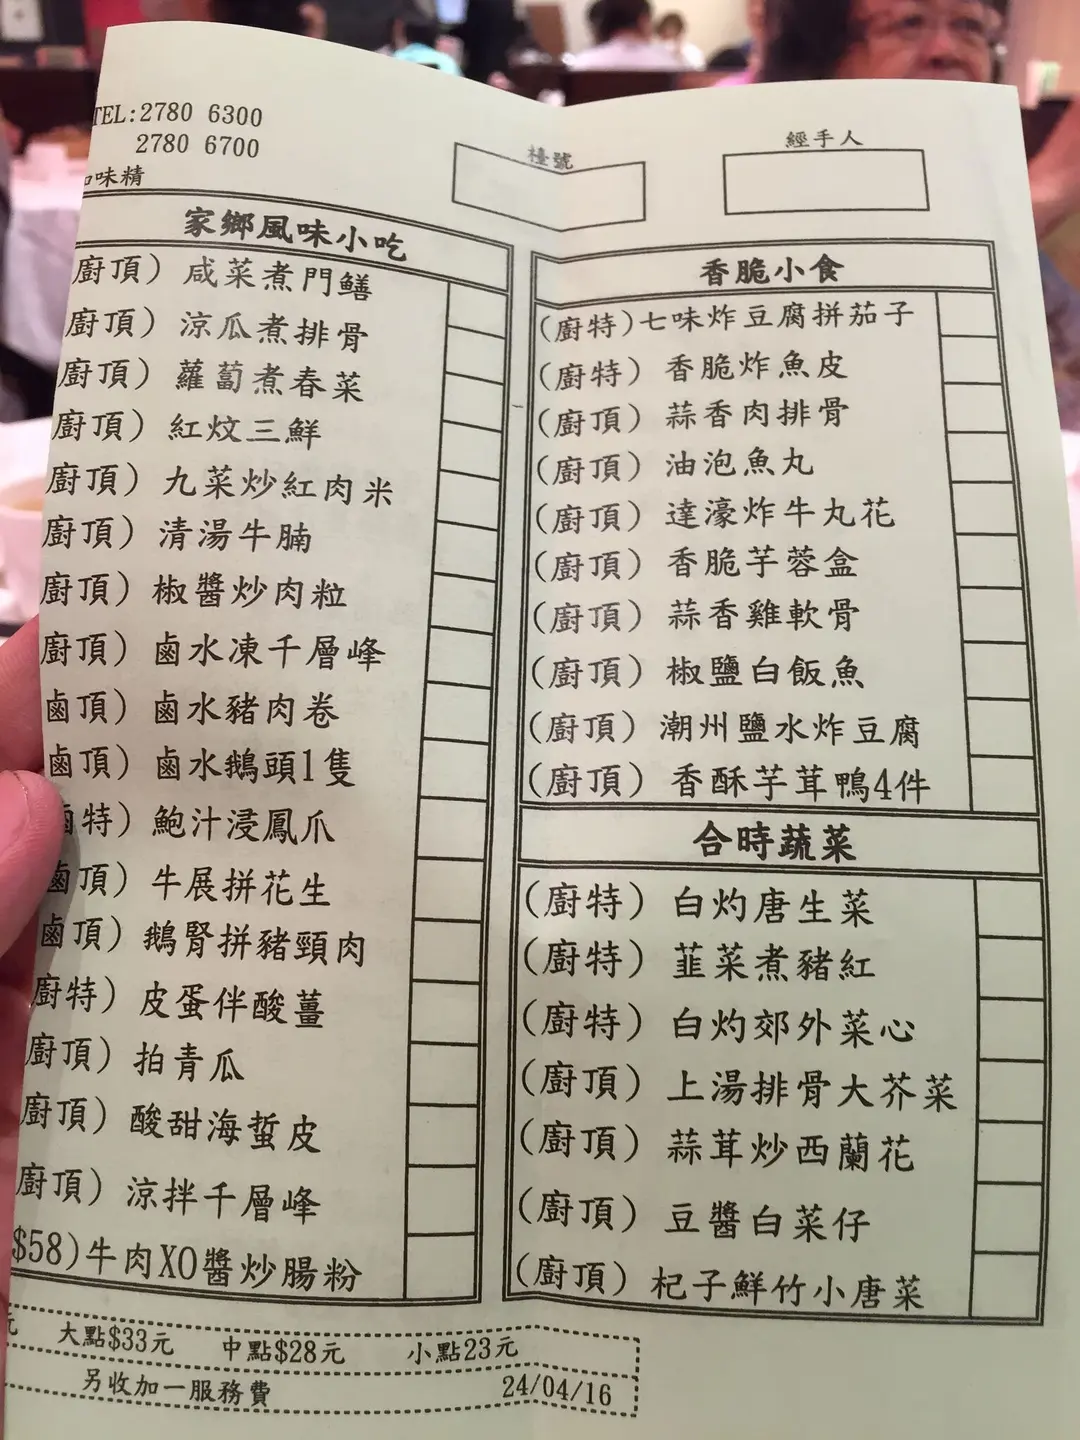 TEL:2780 6300
2780 6700
味精
檯號
經手人
家鄉風味小吃
廚頂) 咸菜煮門鱔
廚頂) 涼瓜煮排骨
廚頂) 蘿蔔煮春菜
廚頂) 紅炆三鮮
廚頂) 九菜炒紅肉米
廚頂) 清湯牛腩
廚頂) 椒醬炒肉粒
廚頂) 鹵水凍千層峰
鹵頂) 鹵水豬肉卷
鹵頂) 鹵水鵝頭1隻
鹵特) 鮑汁浸鳳爪
鹵頂) 牛展拼花生
鹵頂) 鵝腎拼豬頸肉
廚特) 皮蛋伴酸薑
廚頂) 拍青瓜
廚頂) 酸甜海蜇皮
廚頂) 涼拌千層峰
$58)牛肉XO醬炒腸粉
香脆小食
(廚特)七味炸豆腐拼茄子
(廚特) 香脆炸魚皮
(廚頂) 蒜香肉排骨
(廚頂) 油泡魚丸
(廚頂) 達濠炸牛丸花
(廚頂) 香脆芋蓉盒
(廚頂) 蒜香雞軟骨
(廚頂) 椒鹽白飯魚
(廚頂) 潮州鹽水炸豆腐
(廚頂) 香酥芋茸鴨4件
合時蔬菜
(廚特) 白灼唐生菜
(廚特) 韮菜煮豬紅
(廚特) 白灼郊外菜心
(廚頂) 上湯排骨大芥菜
(廚頂) 蒜茸炒西蘭花
(廚頂) 豆醬白菜仔
(廚頂) 杞子鮮竹小唐菜
元 大點$33元 中點$28元 小點23元
另收加一服務費 24/04/16